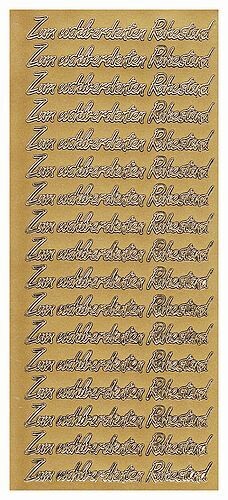 Zum wohlverdienten Ruhestand
Zum wohlverdienten Ruhestand
Zum wohlverdienten Ruhestand
Zum wohlverdienten Ruhestand
Zum wohlverdienten Ruhestand
Zum wohlverdienten Ruhestand
Zum wohlverdienten Ruhestand
Zum wohlverdienten Ruhestand
Zum wohlverdienten Ruhestand
Zum wohlverdienten Ruhestand
Zum wohlverdienten Ruhestand
Zum wohlverdienten Ruhestand
Zum wohlverdienten Ruhestand
Zum wohlverdienten Ruhestand
Zum wohlverdienten Ruhestand
Zum wohlverdienten Ruhestand
Zum wohlverdienten Ruhestand